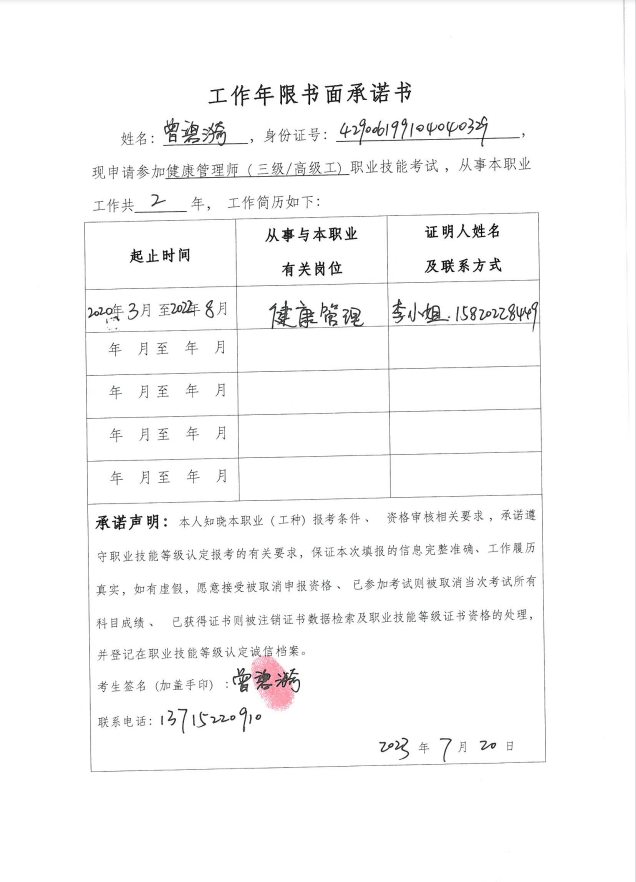 工作年限书面承诺书
姓名：曾碧漪，身份证号：429006199104040329，
现申请参加健康管理师（三级/高级工）职业技能考试，从事本职业
工作共2年，工作简历如下：
起止时间 从事与本职业有关岗位 证明人姓名及联系方式
2020年3月至2022年8月 健康管理 李小姐.15820228449
年 月至 年 月
年 月至 年 月
年 月至 年 月
年 月至 年 月
承诺声明：本人知晓本职业（工种）报考条件、 资格审核相关要求，承诺遵
守职业技能等级认定报考的有关要求，保证本次填报的信息完整准确、工作履历
真实，如有虚假，愿意接受被取消申报资格、 已参加考试则被取消当次考试所有
科目成绩、 已获得证书则被注销证书数据检索及职业技能等级证书资格的处理，
并登记在职业技能等级认定诚信档案。
考生签名（加盖手印）：曾碧漪
联系电话：13715220910
2023年7月20日